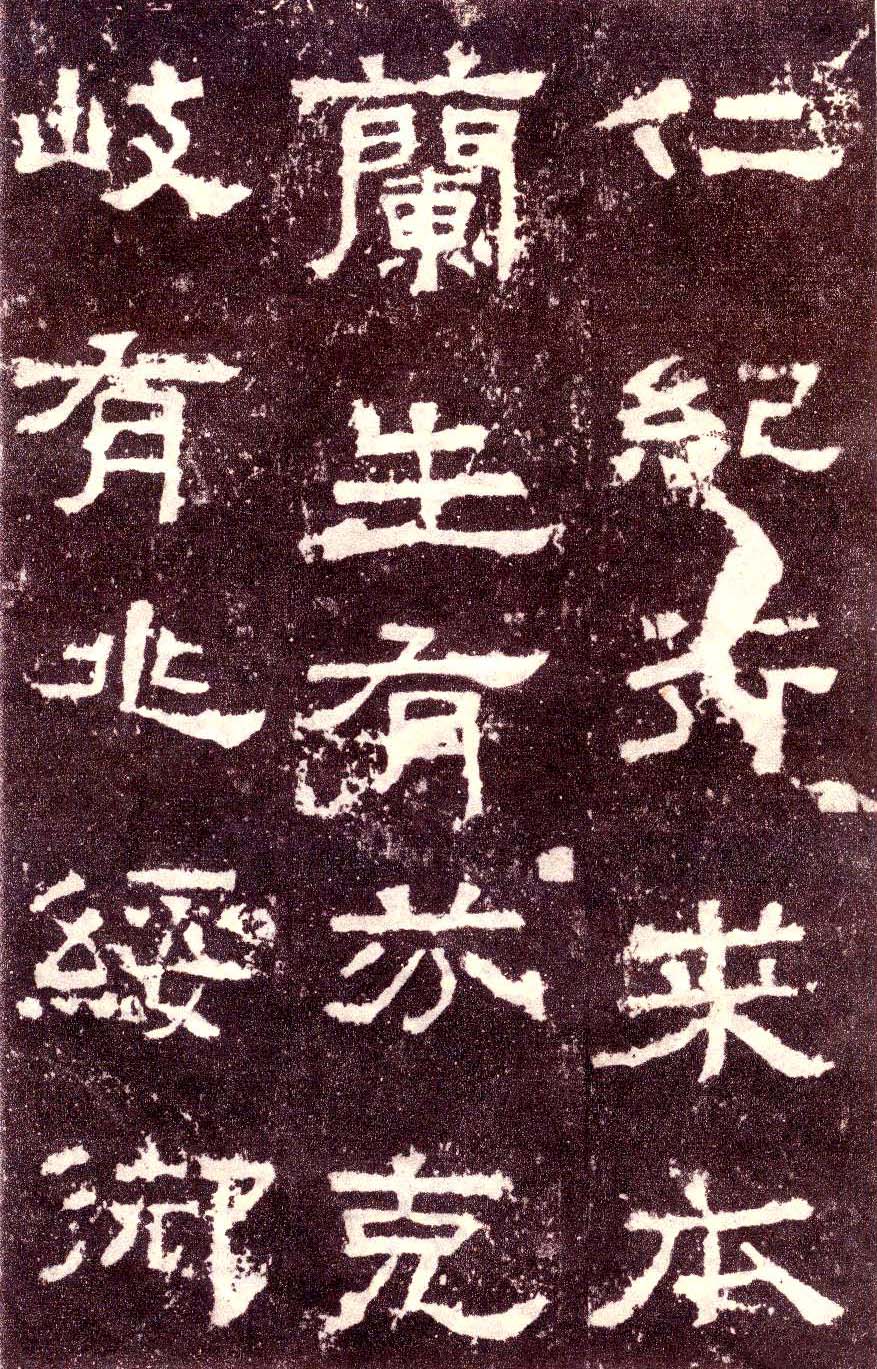 仁紀行来本
蘭生有芬克
岐有兆綏御